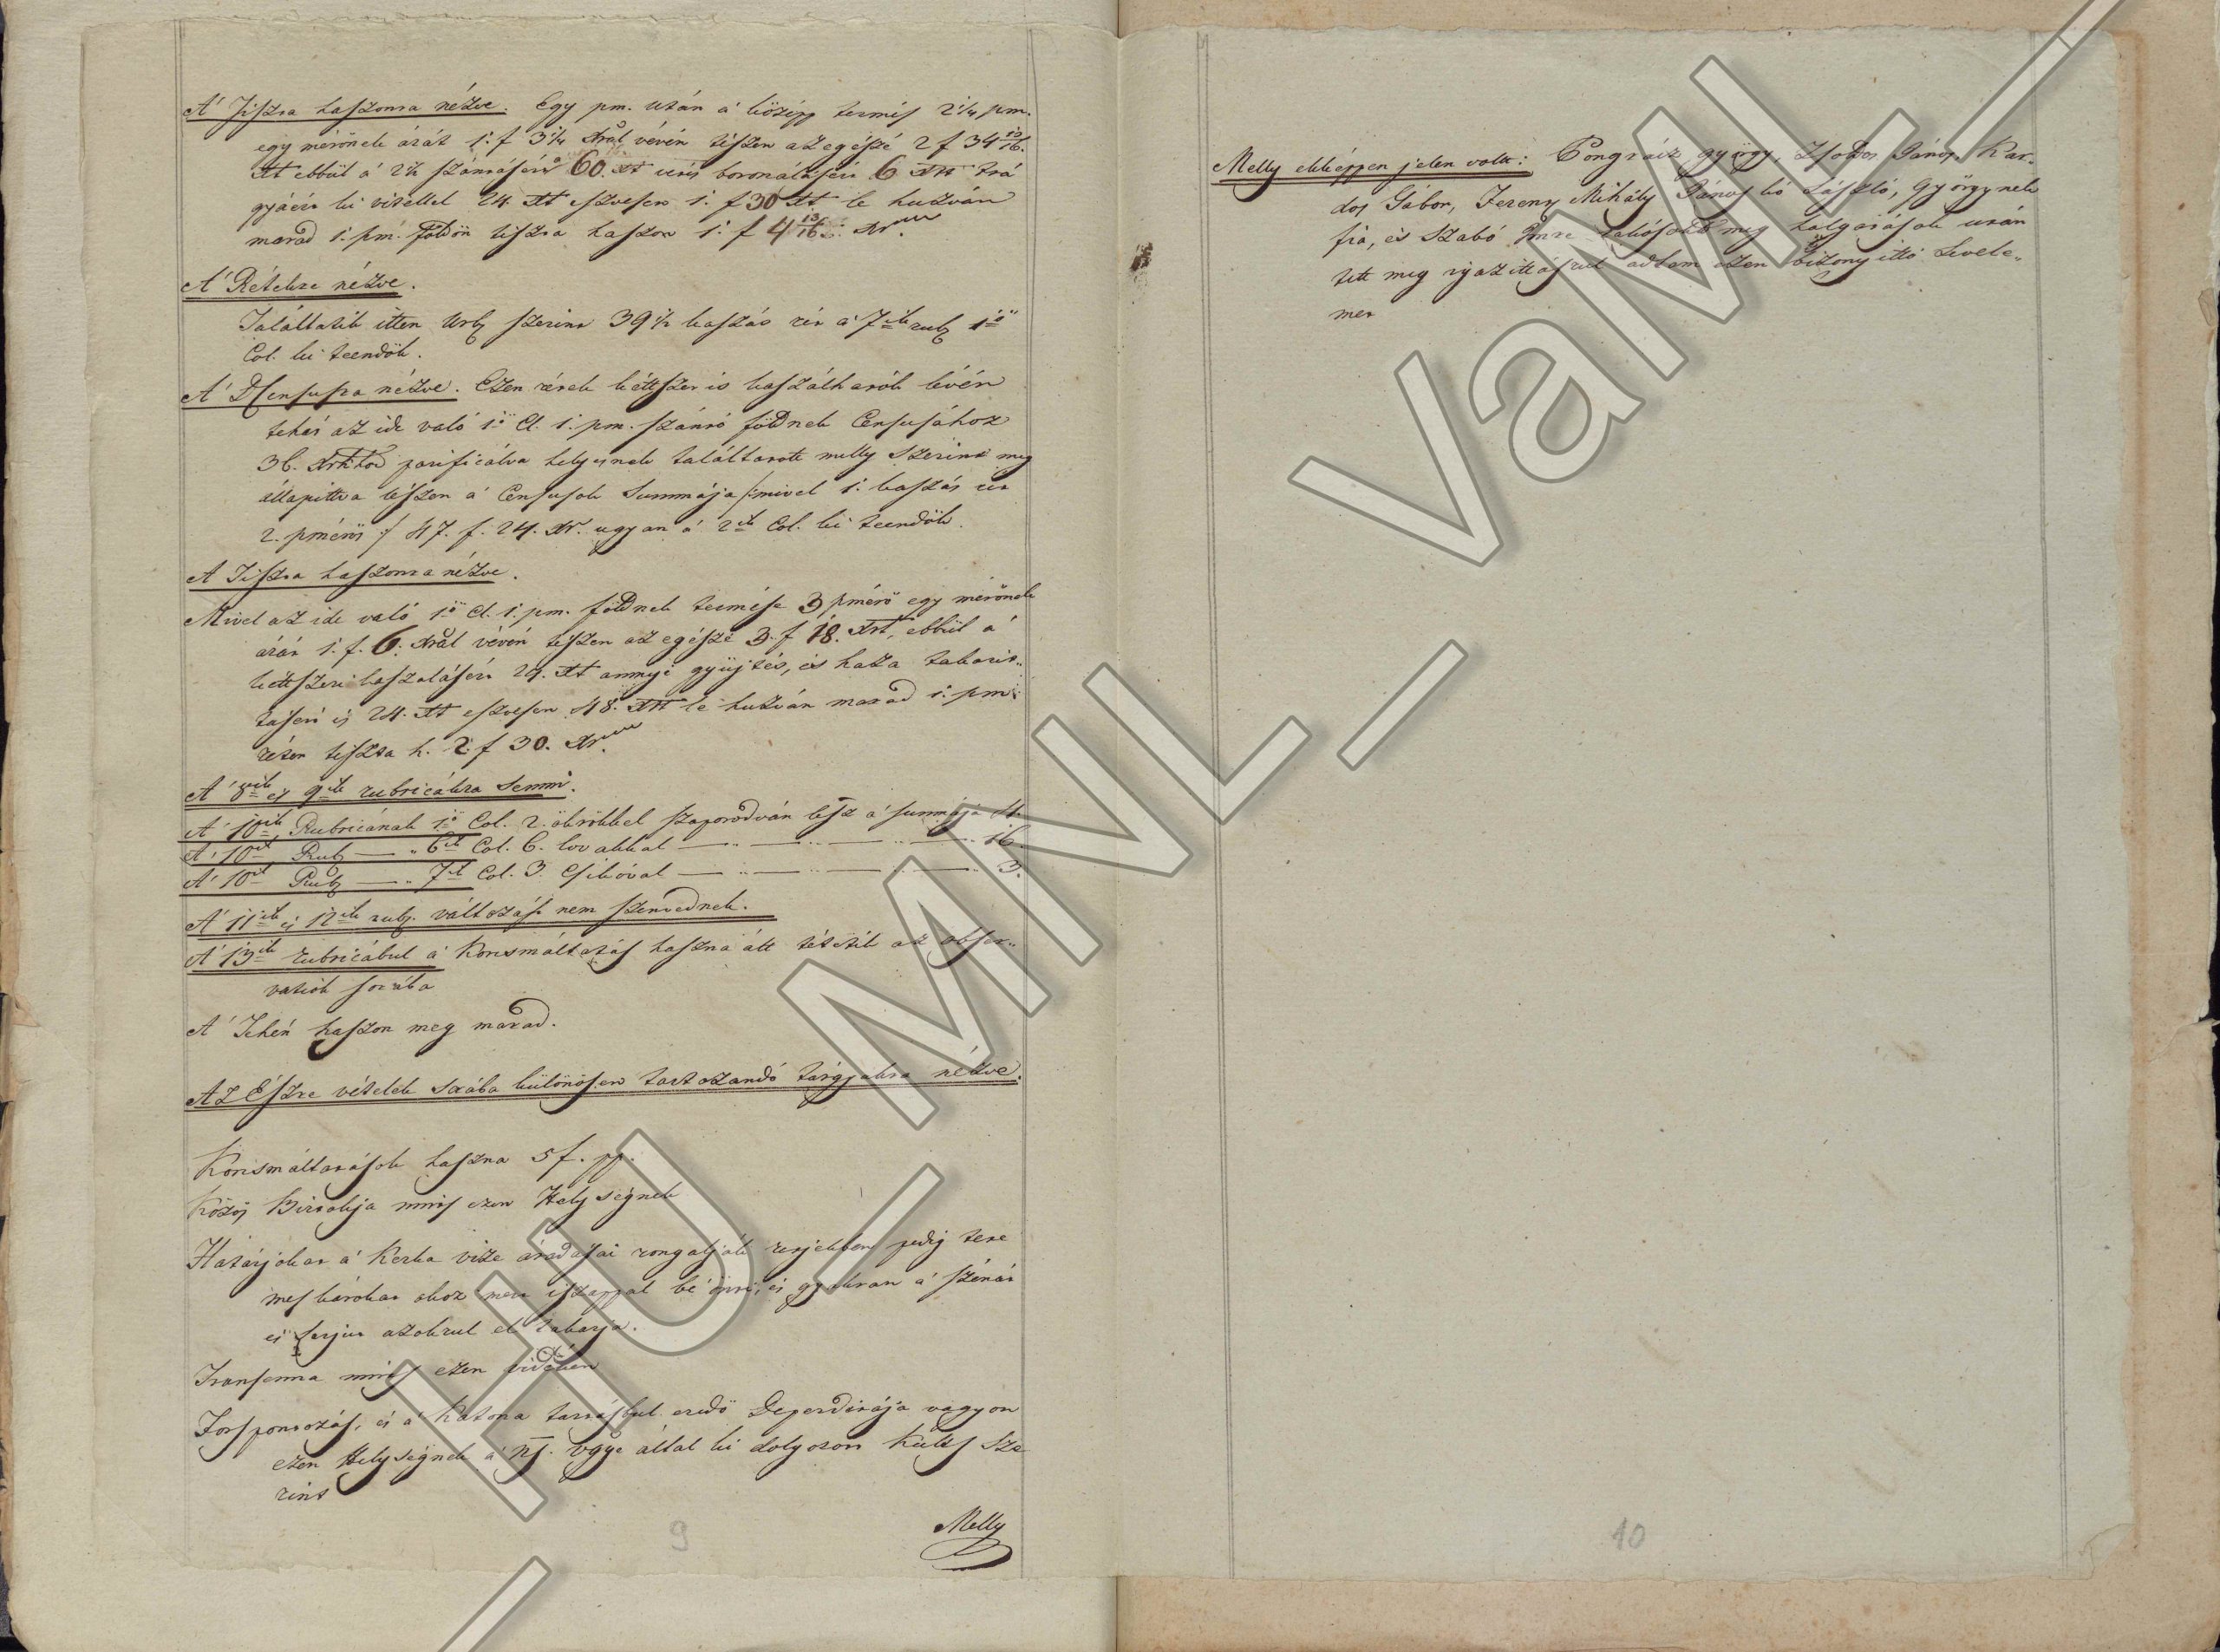 A' Tiszta haszonra nézve. Egy pm. után a' közép termés 2 1/4 pm.
egy mérőnek árát 1. f 3 1/4 Xrál vévén tészen az egészé 2 f 34 13/16.
Xt ebbül a' szántásért 60. Xt vetés boronálásért 6 Xrt trá
gyáért ki vitellel 24 Xt eszvesen 1. f 30 Xt le huzván
marad 1. pm. földön tiszta haszon 1. f 4 13/16. Xr.
A' Rétekre nézve.
Találtatik itten Urb szerint 39 1/2 kaszás rét a' 7ik rub 1ső
Col. ki teendők.
A' Censusra nézve. Ezen rétek kéttszer is kaszálhatók lévén
tehát az ide való 1ső Cl. 1. pm. szántó földnek Censusához
36. parificálva helyesnek találtatott melly szerint meg
állapittva lészen a' Censusok Summája /: mivel 1. kaszás rét
2. pmérős :/ 47. f. 24. Xr. ugyan a' 2ik Col. ki teendők.
A Tiszta haszonra nézve.
Mivel az ide való 1ső Cl. 1. pm. földnek termése 3 pmérő egy mérőnek
árát 1. f. 6. Xrál vévén tészen az egészé 3. f 18. Xrt, ebbül a'
kettszeri kaszalásért 24. Xt annyi gyüjtés, és haza takarit..
tásért is 24. Xt eszvesen 48. Xrt le huzván marad 1. pm.
réten tiszta h. 2. f 30. Xr.
A' 8ik és 9ik rubricákra semmi.
A' 10ik Rubricának 1ső Col. 2. ökrökkel szaporodván lesz a' summája
A' 10ik Rub — „ 6ik Col. 6. lovakkal — „ — „ — „ — 16.
A' 10ik Rub — „ 7ik Col. 3. Csikóval — „ — „ — „ — 3.
A' 11ik és 12ik rub. változást nem szenvednek.
A' 13ik rubricábul a' Korsmáltatás haszna ált tétetik az obser..
vatiók sorába
A' Tehén haszon meg marad.
Az Észre vételek sorába különösen tartozandó tárgyakra nézve.
Korismáltatások haszna 5 f. pp.
Közös Birtokja nints ezen Helységnek
Határjokat a' Kerka vize áradásai rongalják retjekben pedig tete
mes károkat okoz mert iszappal bé önti, és gyakran a' szénát
és sarjut azokrul el takarja.
Transenna nints ezen vidéken
Forspontozás, és a' Katona tartásbul eredő Deperditája vagyon
ezen Helységnek a' ns. vgye által ki dolgozott Kults sze
rint
Melly
9
Melly ekképpen jelen volt: Pongrátz györgy, Zsoldos János, Kar..
dos Gábor, Ferentz Mihály János kó László, Györgynek
fia, és Szabó Imre lakósok meg halgatások után
tett meg igazittásrul adtam ezen bizonyittó Levele..
met
10
HU_MNL_VaML_